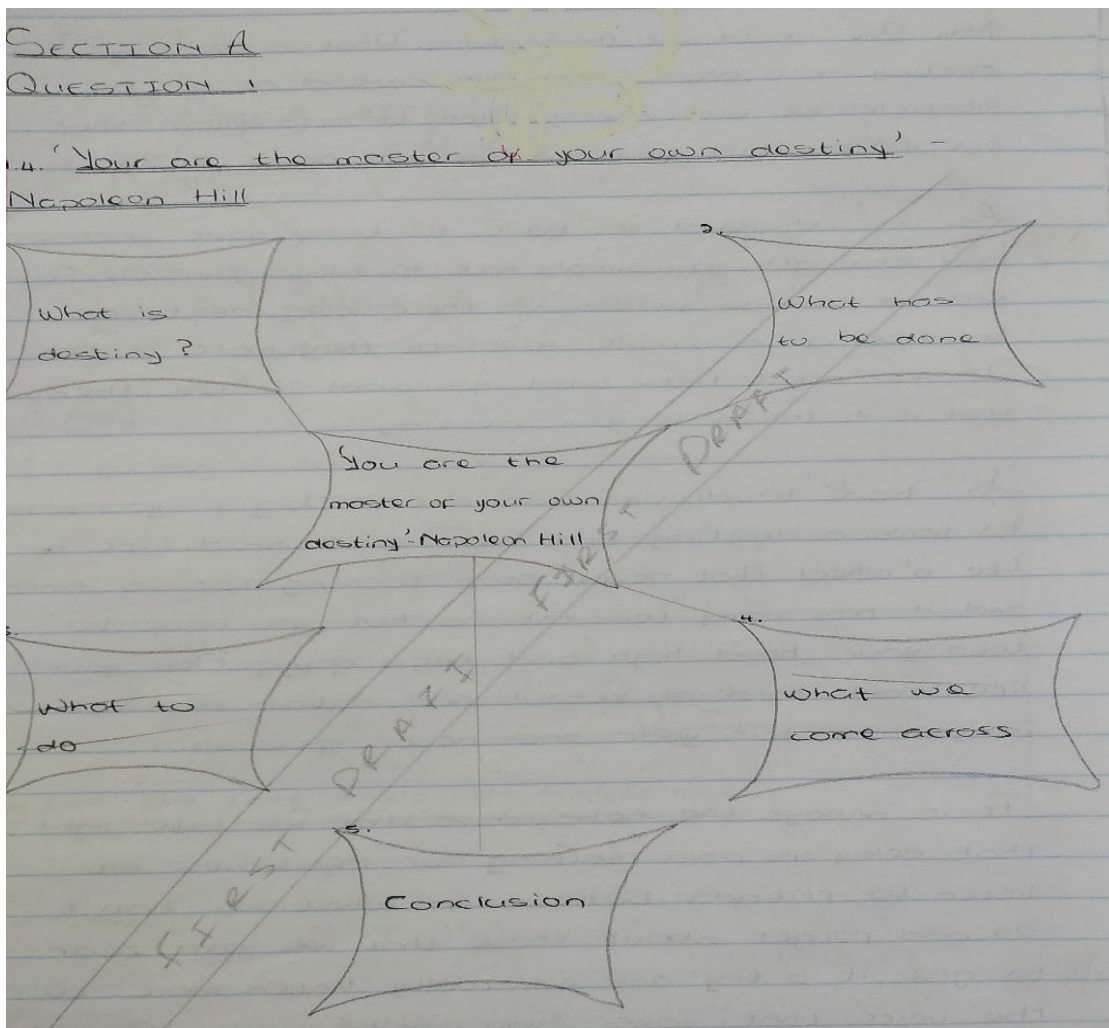 SECTION A
QUESTION 1
1.4. 'Your are the master of your own destiny' -
Napoleon Hill
What is
destiny?
2.
What has
to be done
'You are the
master of your own
destiny'-Napoleon Hill
3.
What to
do
4.
What we
come across
5.
Conclusion
FIRST DRAFT
FIRST DRAFT